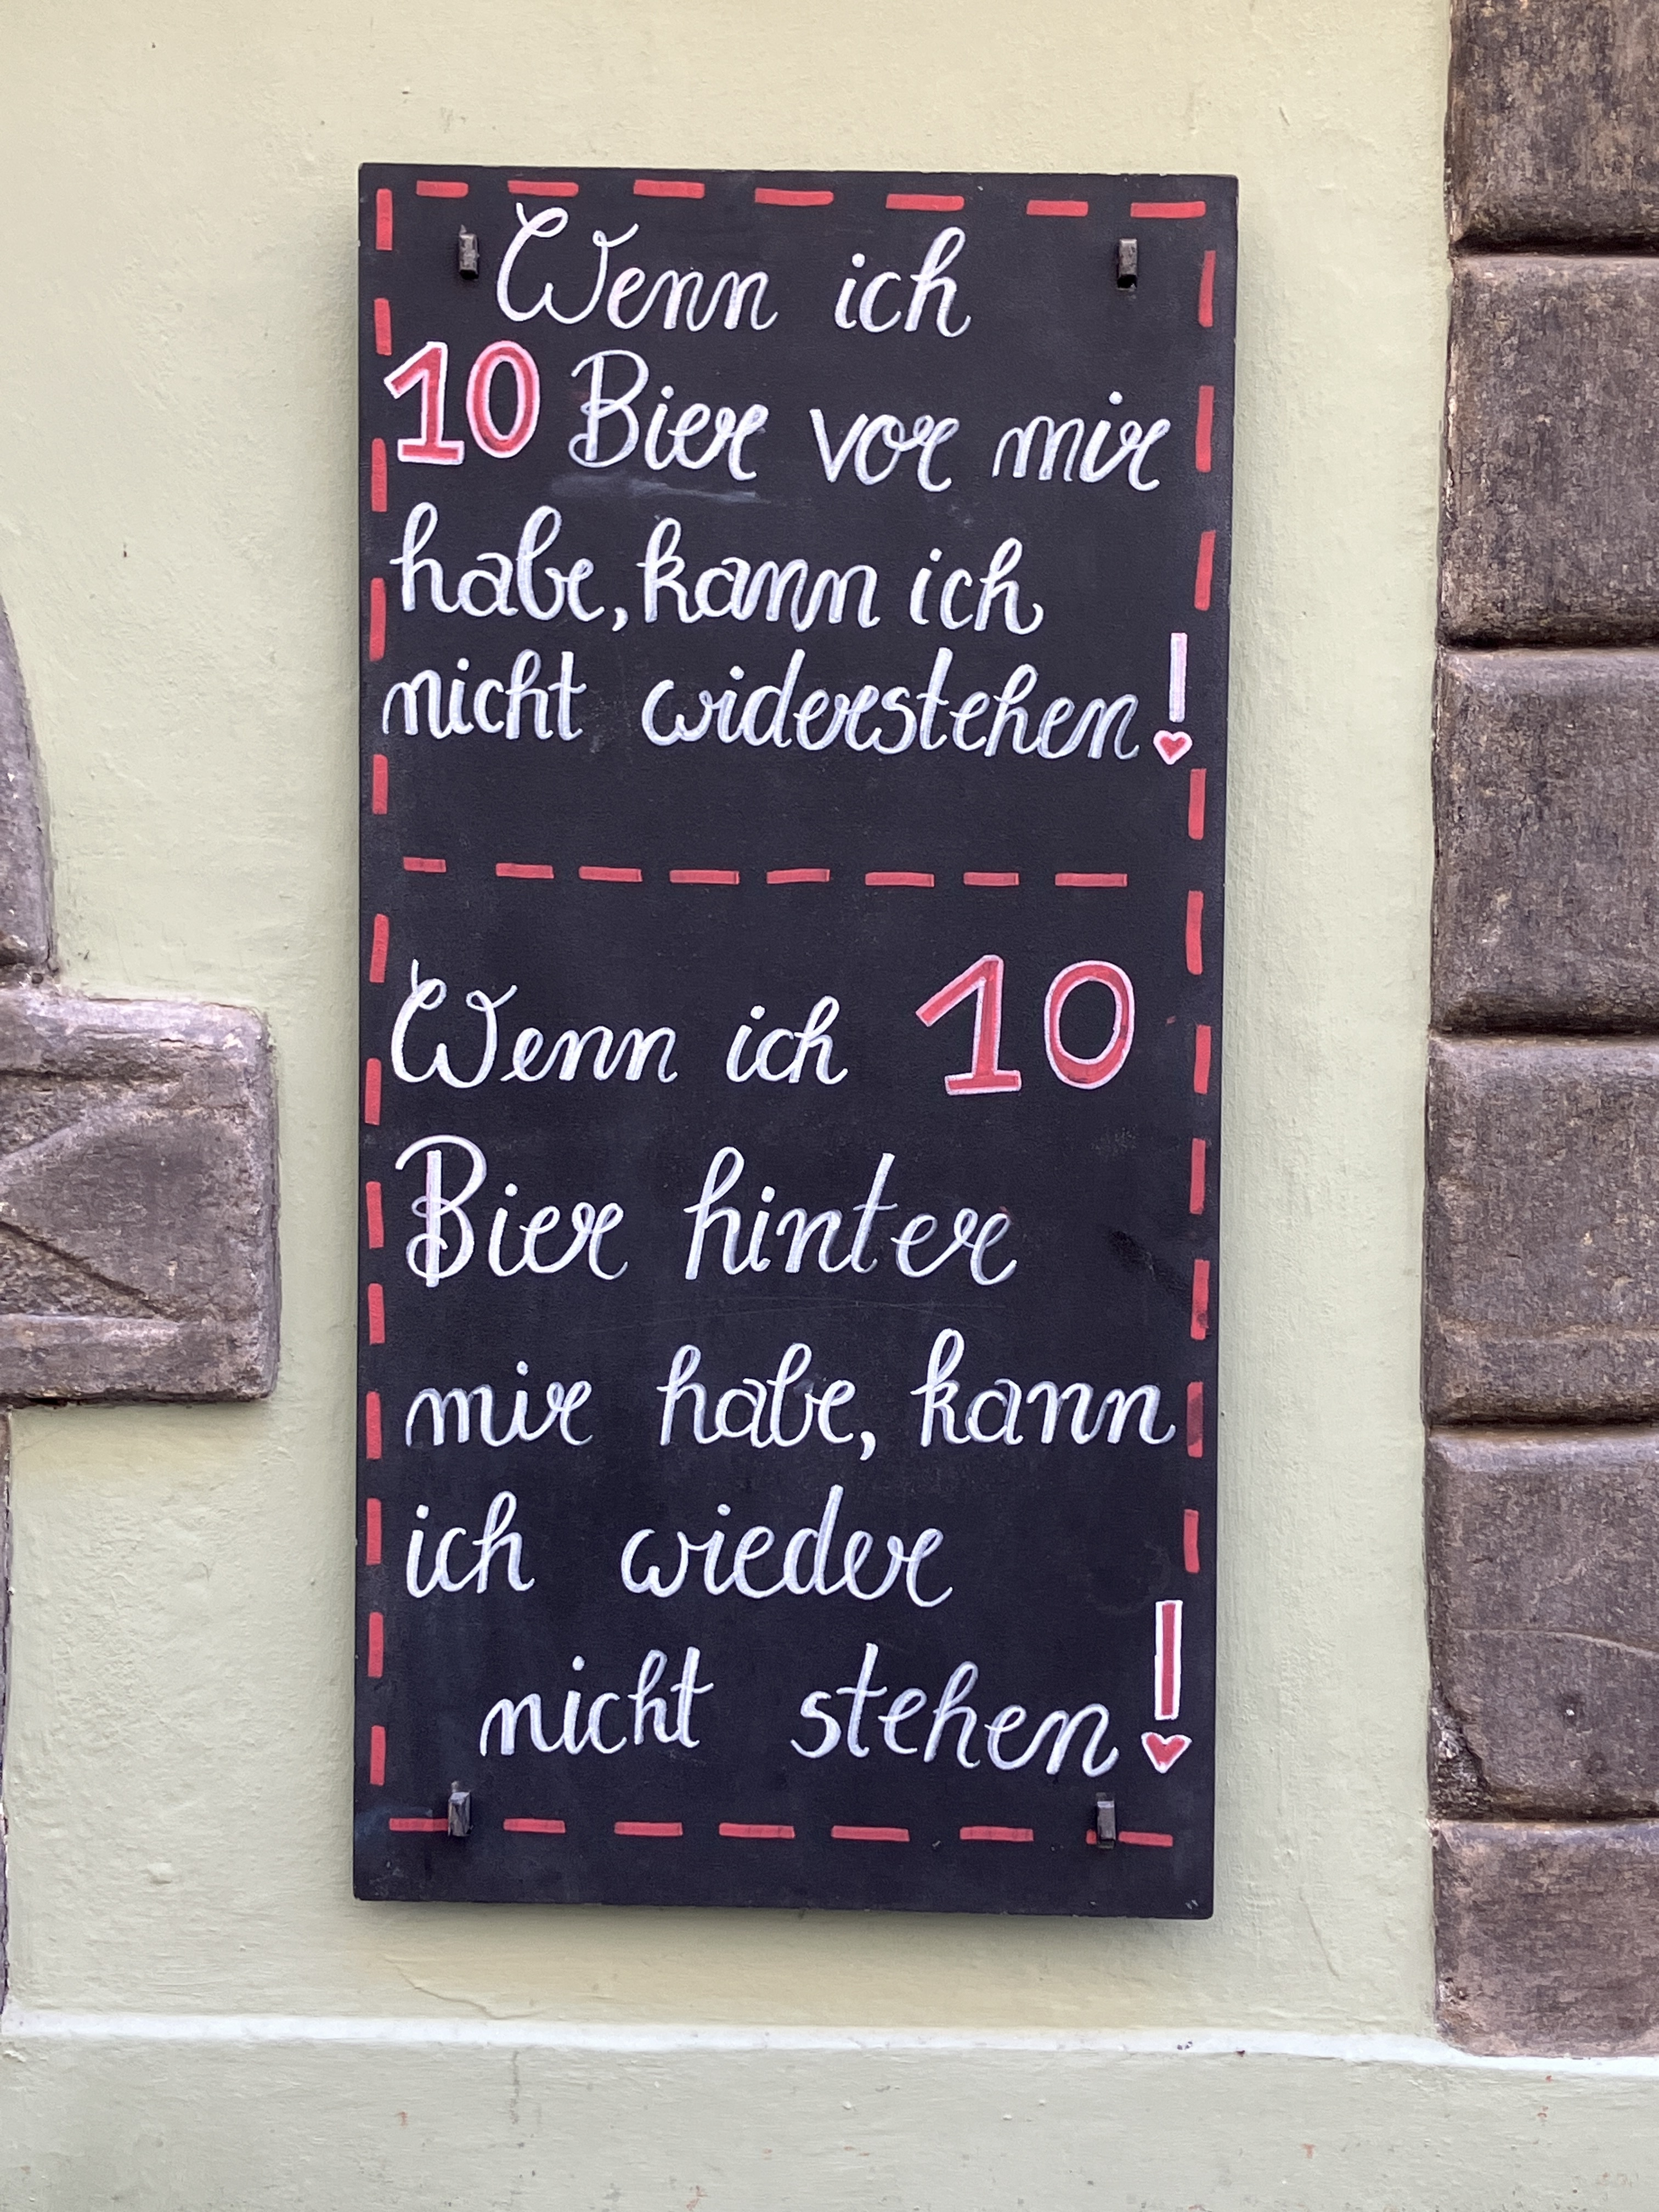 Wenn ich
10 Bier vor mir
habe, kann ich
nicht widerstehen!
Wenn ich 10
Bier hinter
mir habe, kann
ich wieder
nicht stehen!